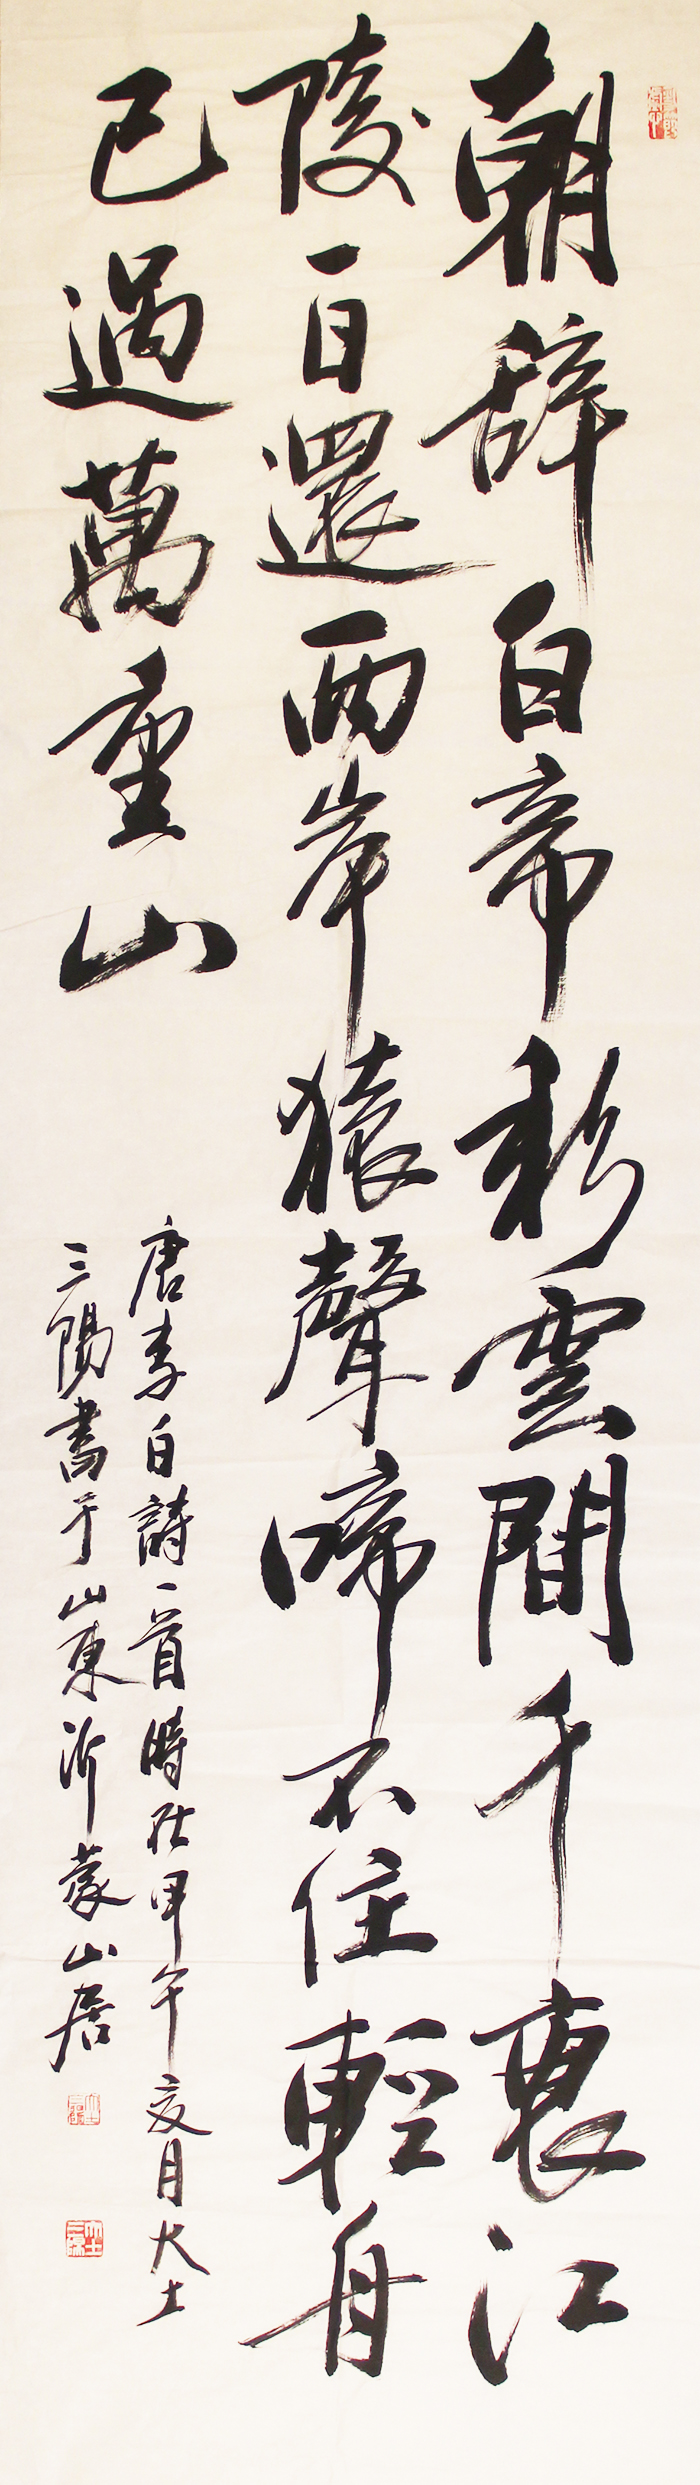 朝辞白帝彩雲間千裏江
陵一日還兩岸猿聲啼不住輕舟
已過萬重山
唐李白詩一首時在甲午夏月大土
三陽書于山東沂蒙山居